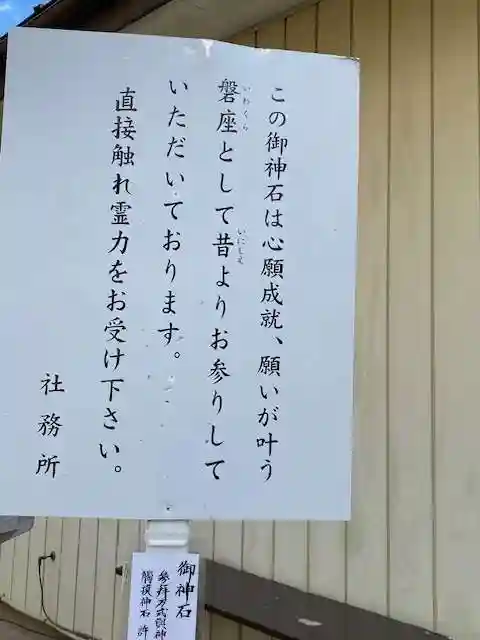 この御神石は心願成就、願いが叶う
磐座として昔よりお参りして
いただいております。
直接触れ霊力をお受け下さい。
社務所
御神石
参拝方式與神
觸摸神石 許